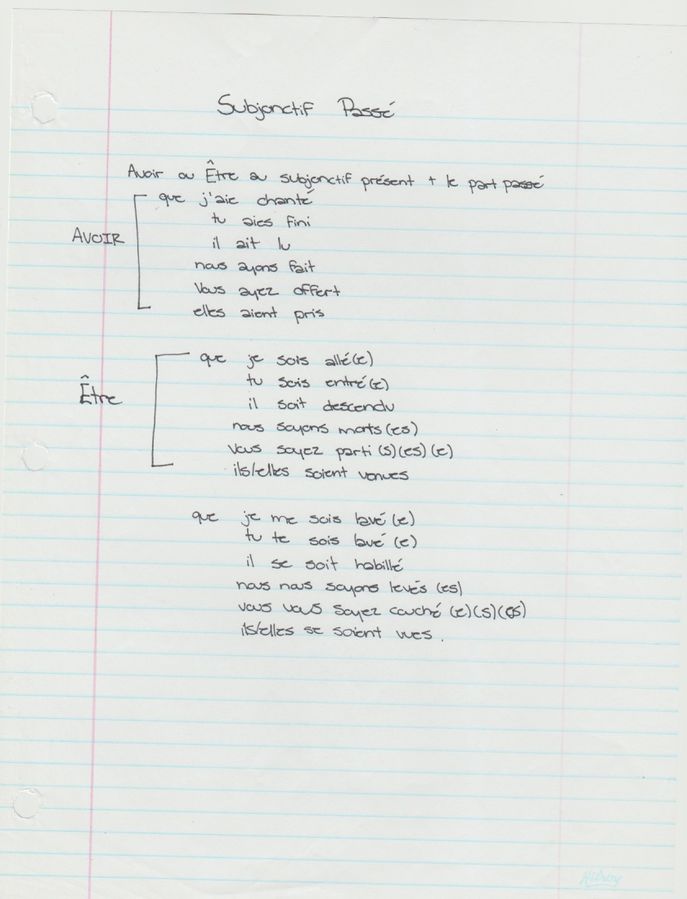 Subjonctif Passé
Avoir ou Être au subjonctif présent + le part passé
AVOIR
que j'aie chanté
tu aies fini
il ait lu
nous ayons fait
Vous ayez offert
elles aient pris
Être
que je sois allé(e)
tu sois entré(e)
il soit descendu
nous soyons morts(es)
Vous soyez parti(s)(es)(e)
ils/elles soient venues
que je me sois lavé(e)
tu te sois lavé(e)
il se soit habillé
nous nous soyons levés (es)
vous vous soyez couché (e)(s)(es)
ils/elles se soient vues.